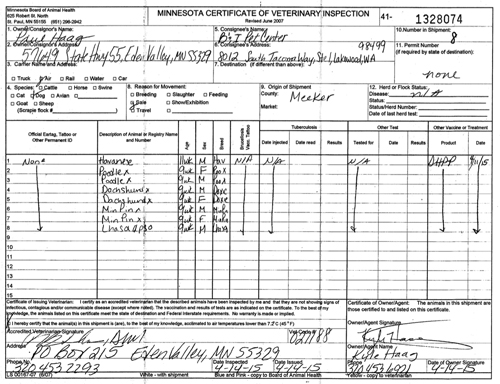 Minnesota Board of Animal Health
625 Robert St. North
St. Paul, Minnesota 55155 (651) 296-2942
MINNESOTA CERTIFICATE OF VETERINARY INSPECTION
Revised June 2007
41- 1328074
1. Owner/Consignor's Name:
Paul Haag
5. Consignee's Name:
Pet Center
10. Number in Shipment:
8
2. Owner/Consignor's Address
57649 State Hwy 55, Eden Valley, MN 55329
6. Consignee's Address
98499
8012 South Tacoma Way, Ste, Lakewood, WA
11. Permit Number
(if required by state of destination):
none
3. Carrier Name and Address
7. Destination (if different from above):
Truck Air Rail Water Car
4. Species: Cattle Horse Swine
Cat Dog Avian
Goat Sheep
(Scrapie flock # )
8. Reason for Movement:
Breeding Slaughter Feeding
Sale Show/Exhibition
Travel
9. Origin of Shipment
County: Meeker
Market:
12. Herd or Flock Status:
Disease: N/A
Status:
Status/Herd Number:
Date of last herd test:
Official Eartag, Tattoo or Other Permanent ID
Description of Animal or Registry Name and Number
Age
Sex
Breed
Brucellosis Vacc. Tattoo
Tuberculosis
Date injected
Date read
Results
Other Test
Tested for
Date
Results
Other Vaccine or Treatment
Product
Date
1 None Havanese 11wk M Hav N/A N/A N/A DHPP 9/11/15
2 Poodle x 9wk F Poo x
3 Poodle x 9wk M Poo x
4 Dachshund x 9wk M
5 Dachshund x 9wk F
6 Min Pin x 9wk M
7 Min Pin x 9wk F
8 Lhasa Apso 8wk M Lhasa
9
10
11
12
13
14
15
Certificate of Issuing Veterinarian: I certify as an accredited veterinarian that the described animals have been inspected by me and that they are not showing signs of
infectious, contagious and/or communicable disease (except where noted). The vaccination and results of tests are as indicated on the certificate. To the best of my knowledge, the
animals listed on this certificate meet the state of destination and Federal interstate requirements. No warranty is made or implied.
I hereby certify that the animal(s) in this shipment is (are), to the best of my knowledge, acclimated to air temperatures lower than 7.2°C (45°F)
Certificate of Owner/Agent: The animals in this shipment are
those certified to and listed on this certificate.
Accredited Veterinarian Signature
021788
Owner/Agent Signature
Address
PO Box 215 Eden Valley, MN 55329
Kyle Haag
Phone No.
320 453 2293
Date Inspected
9-14-15
Date Issued
9-14-15
Phone No.
320 453 6921
Date of Owner Signature
9-14-15
LS 00167-07 (6/07)
White - with shipment
Blue and Pink - copy to Board of Animal Health
Yellow - copy to veterinarian